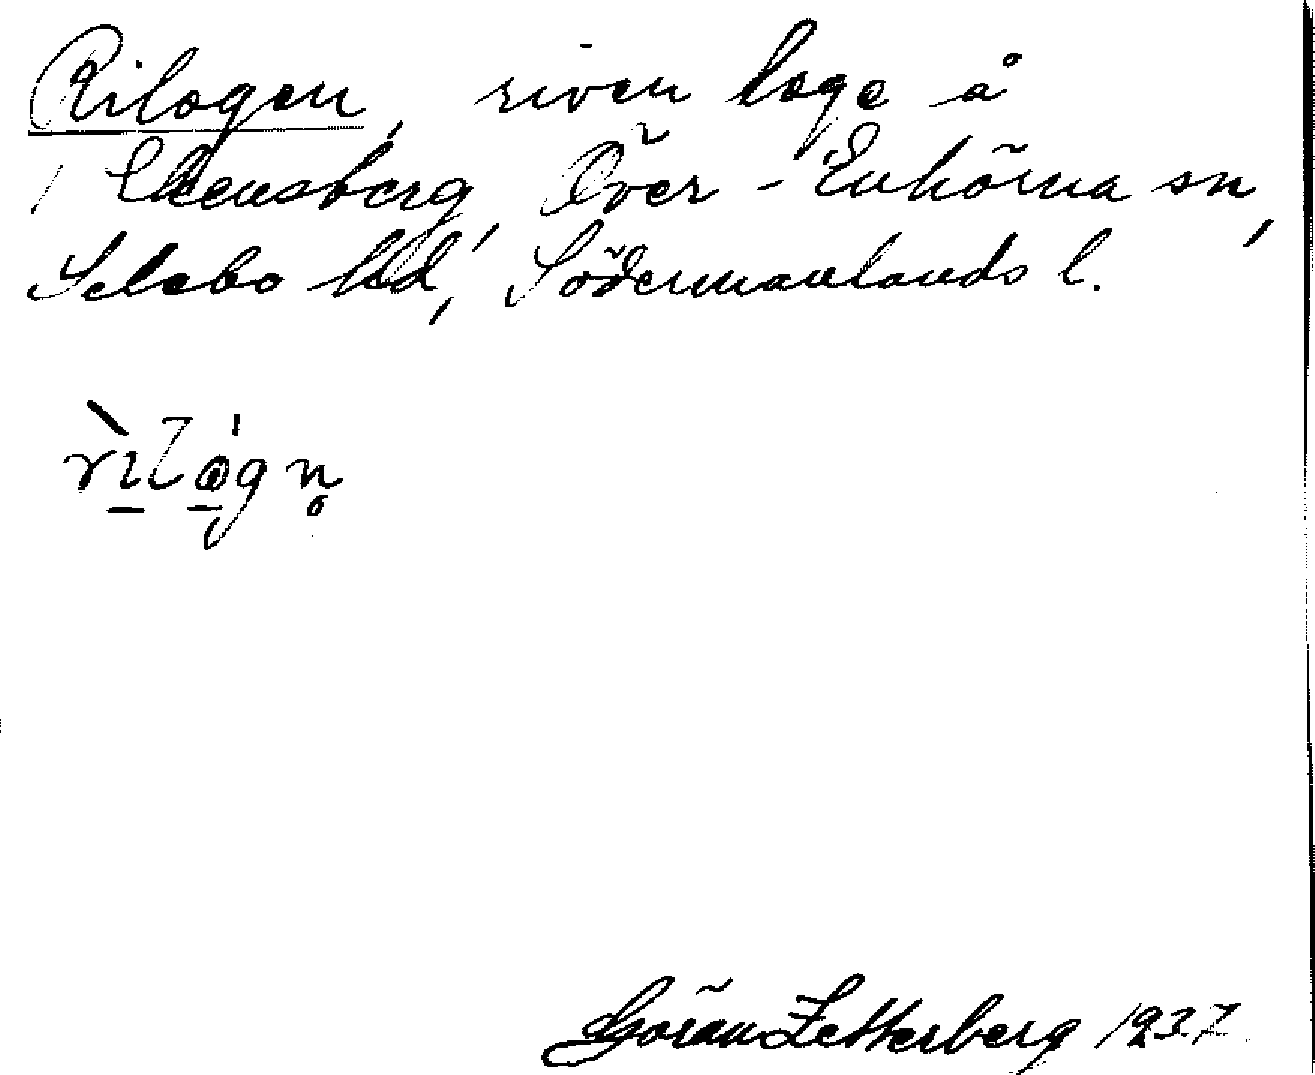 Rilogen, riven loge å
Ekensberg, Över-Enhörna sn,
Selebo hd, Södermanlands l.
Göran Zetterberg 1937